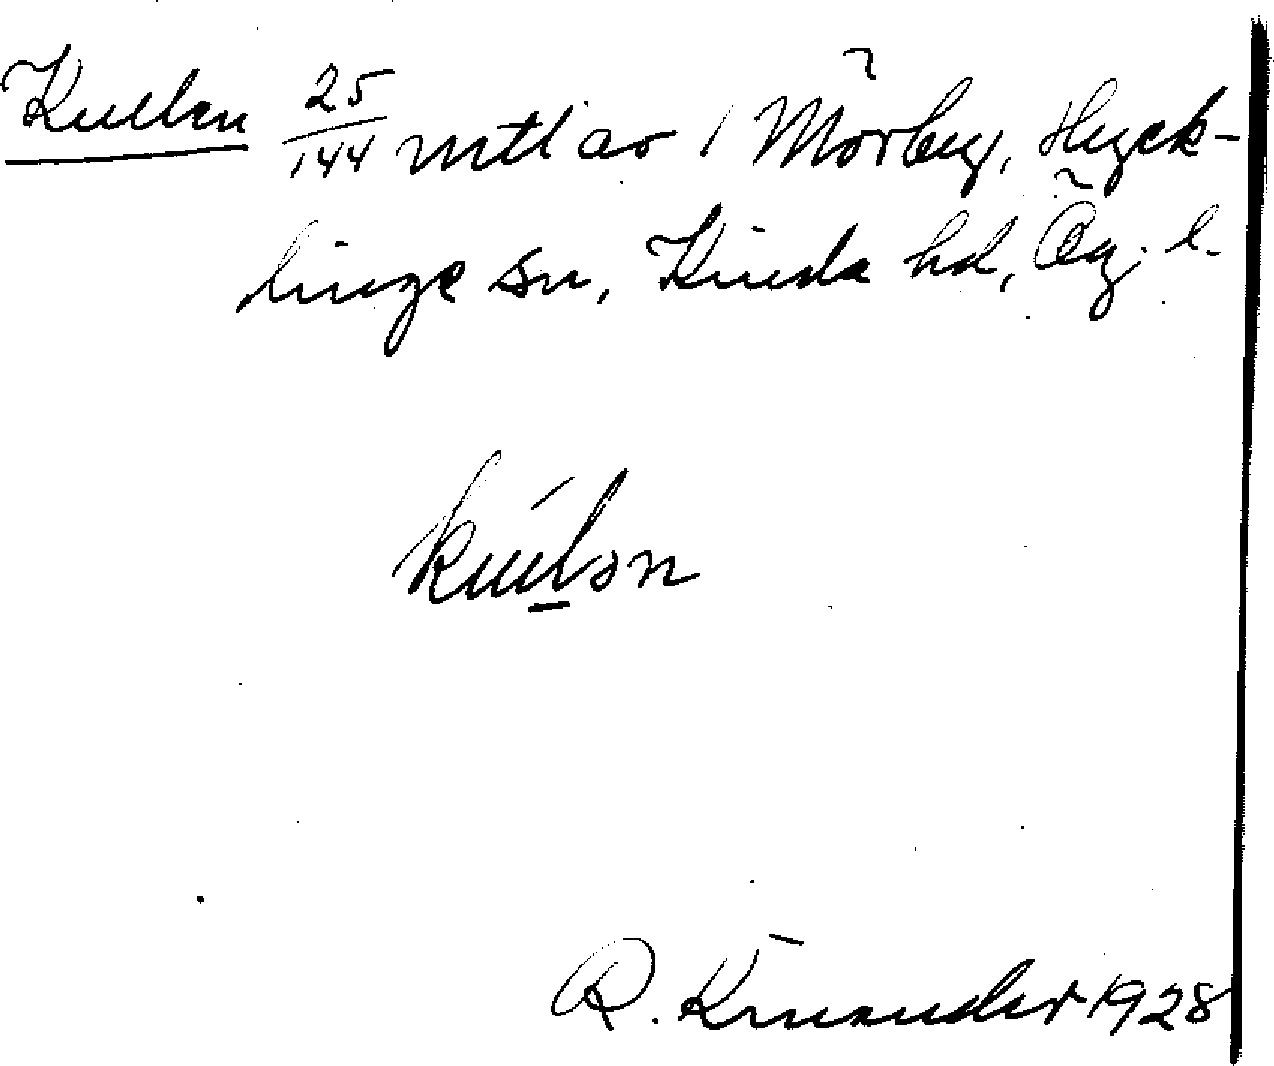 Kullen 25/144 mtl av 1 Mörby, Hyck-
linge sn, Kinda hd, Ög. l.
R. Kinander 1928